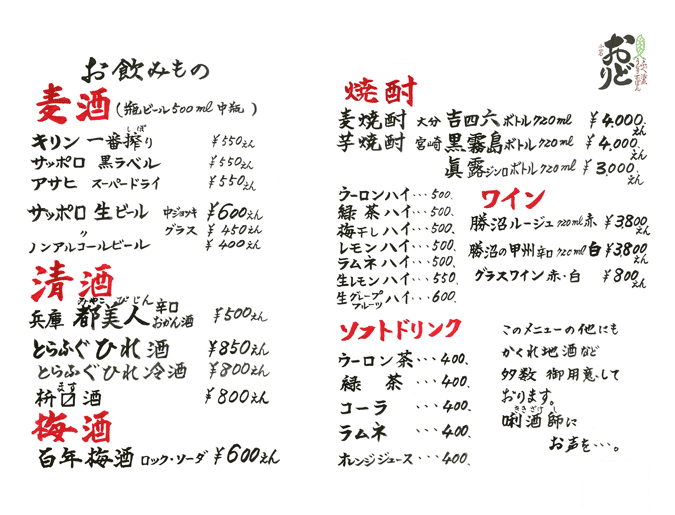 お飲みもの
麦酒(瓶ビール500ml中瓶)
キリン 一番搾り ¥550えん
しぼ
サッポロ 黒ラベル ¥550えん
アサヒ スーパードライ ¥550えん
サッポロ生ビール 中ジョッキ ¥600えん
〃 グラス ¥450えん
ノンアルコールビール ¥400えん
清酒
みやこ びじん
兵庫 都美人 辛口 おかん酒 ¥500えん
とらふぐひれ酒 ¥850えん
とらふぐひれ冷酒 ¥800えん
ます
枡酒 ¥800えん
梅酒
百年梅酒 ロック・ソーダ ¥600えん
おどり
焼酎
麦焼酎 大分 吉四六 ボトル720ml ¥4,000.えん
芋焼酎 宮崎 黒霧島 ボトル720ml ¥4,000.えん
眞露 ジンロボトル720ml ¥3,000.えん
ウーロンハイ・・・500.
緑茶ハイ・・・500.
梅干しハイ・・・500.
レモンハイ・・・500.
ラムネハイ・・・500.
生レモンハイ・・・550.
生グレープフルーツハイ・・・600.
ワイン
勝沼ルージュ720ml赤 ¥3800.えん
勝沼の甲州辛口720ml白 ¥3800.えん
グラスワイン赤・白 ¥800えん
ソフトドリンク
ウーロン茶・・・400.
緑茶・・・400.
コーラ・・・400.
ラムネ・・・400.
オレンジジュース・・・400.
このメニューの他にも
かくれ地酒など
多数 御用意して
おります。
ききざけし
唎酒師に
お声を…。